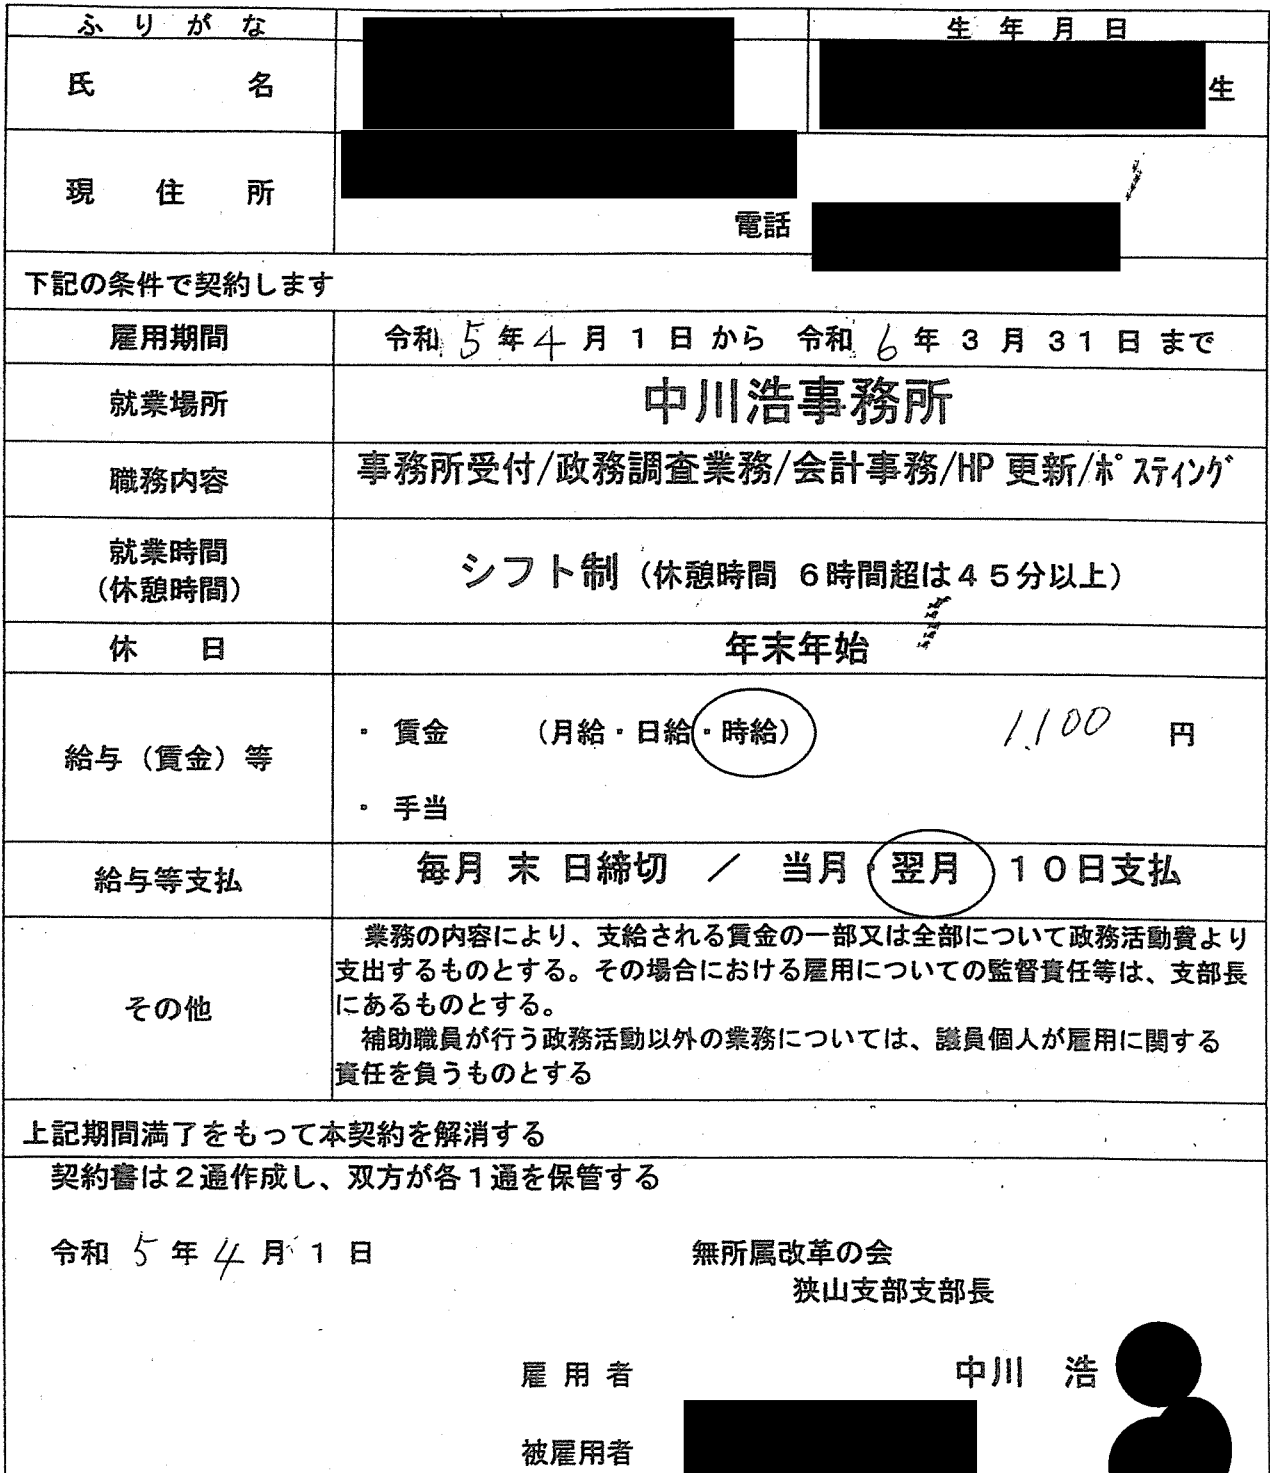 ふりがな 生年月日
氏名 生
現住所
電話
下記の条件で契約します
雇用期間 令和 5 年 4 月 1 日 から 令和 6 年 3 月 31 日 まで
就業場所 中川浩事務所
職務内容 事務所受付/政務調査業務/会計事務/HP 更新/ﾎﾟｽﾃｨﾝｸﾞ
就業時間
(休憩時間) シフト制(休憩時間 6時間超は45分以上)
休日 年末年始
給与(賃金)等 ・ 賃金 (月給・日給・時給) 1,100 円
・ 手当
給与等支払 毎月 末 日締切 / 当月・翌月 10日支払
その他 業務の内容により、支給される賃金の一部又は全部について政務活動費より
支出するものとする。その場合における雇用についての監督責任等は、支部長
にあるものとする。
補助職員が行う政務活動以外の業務については、議員個人が雇用に関する
責任を負うものとする
上記期間満了をもって本契約を解消する
契約書は2通作成し、双方が各1通を保管する
令和 5 年 4 月 1 日 無所属改革の会
狭山支部支部長
雇用者 中川 浩
被雇用者